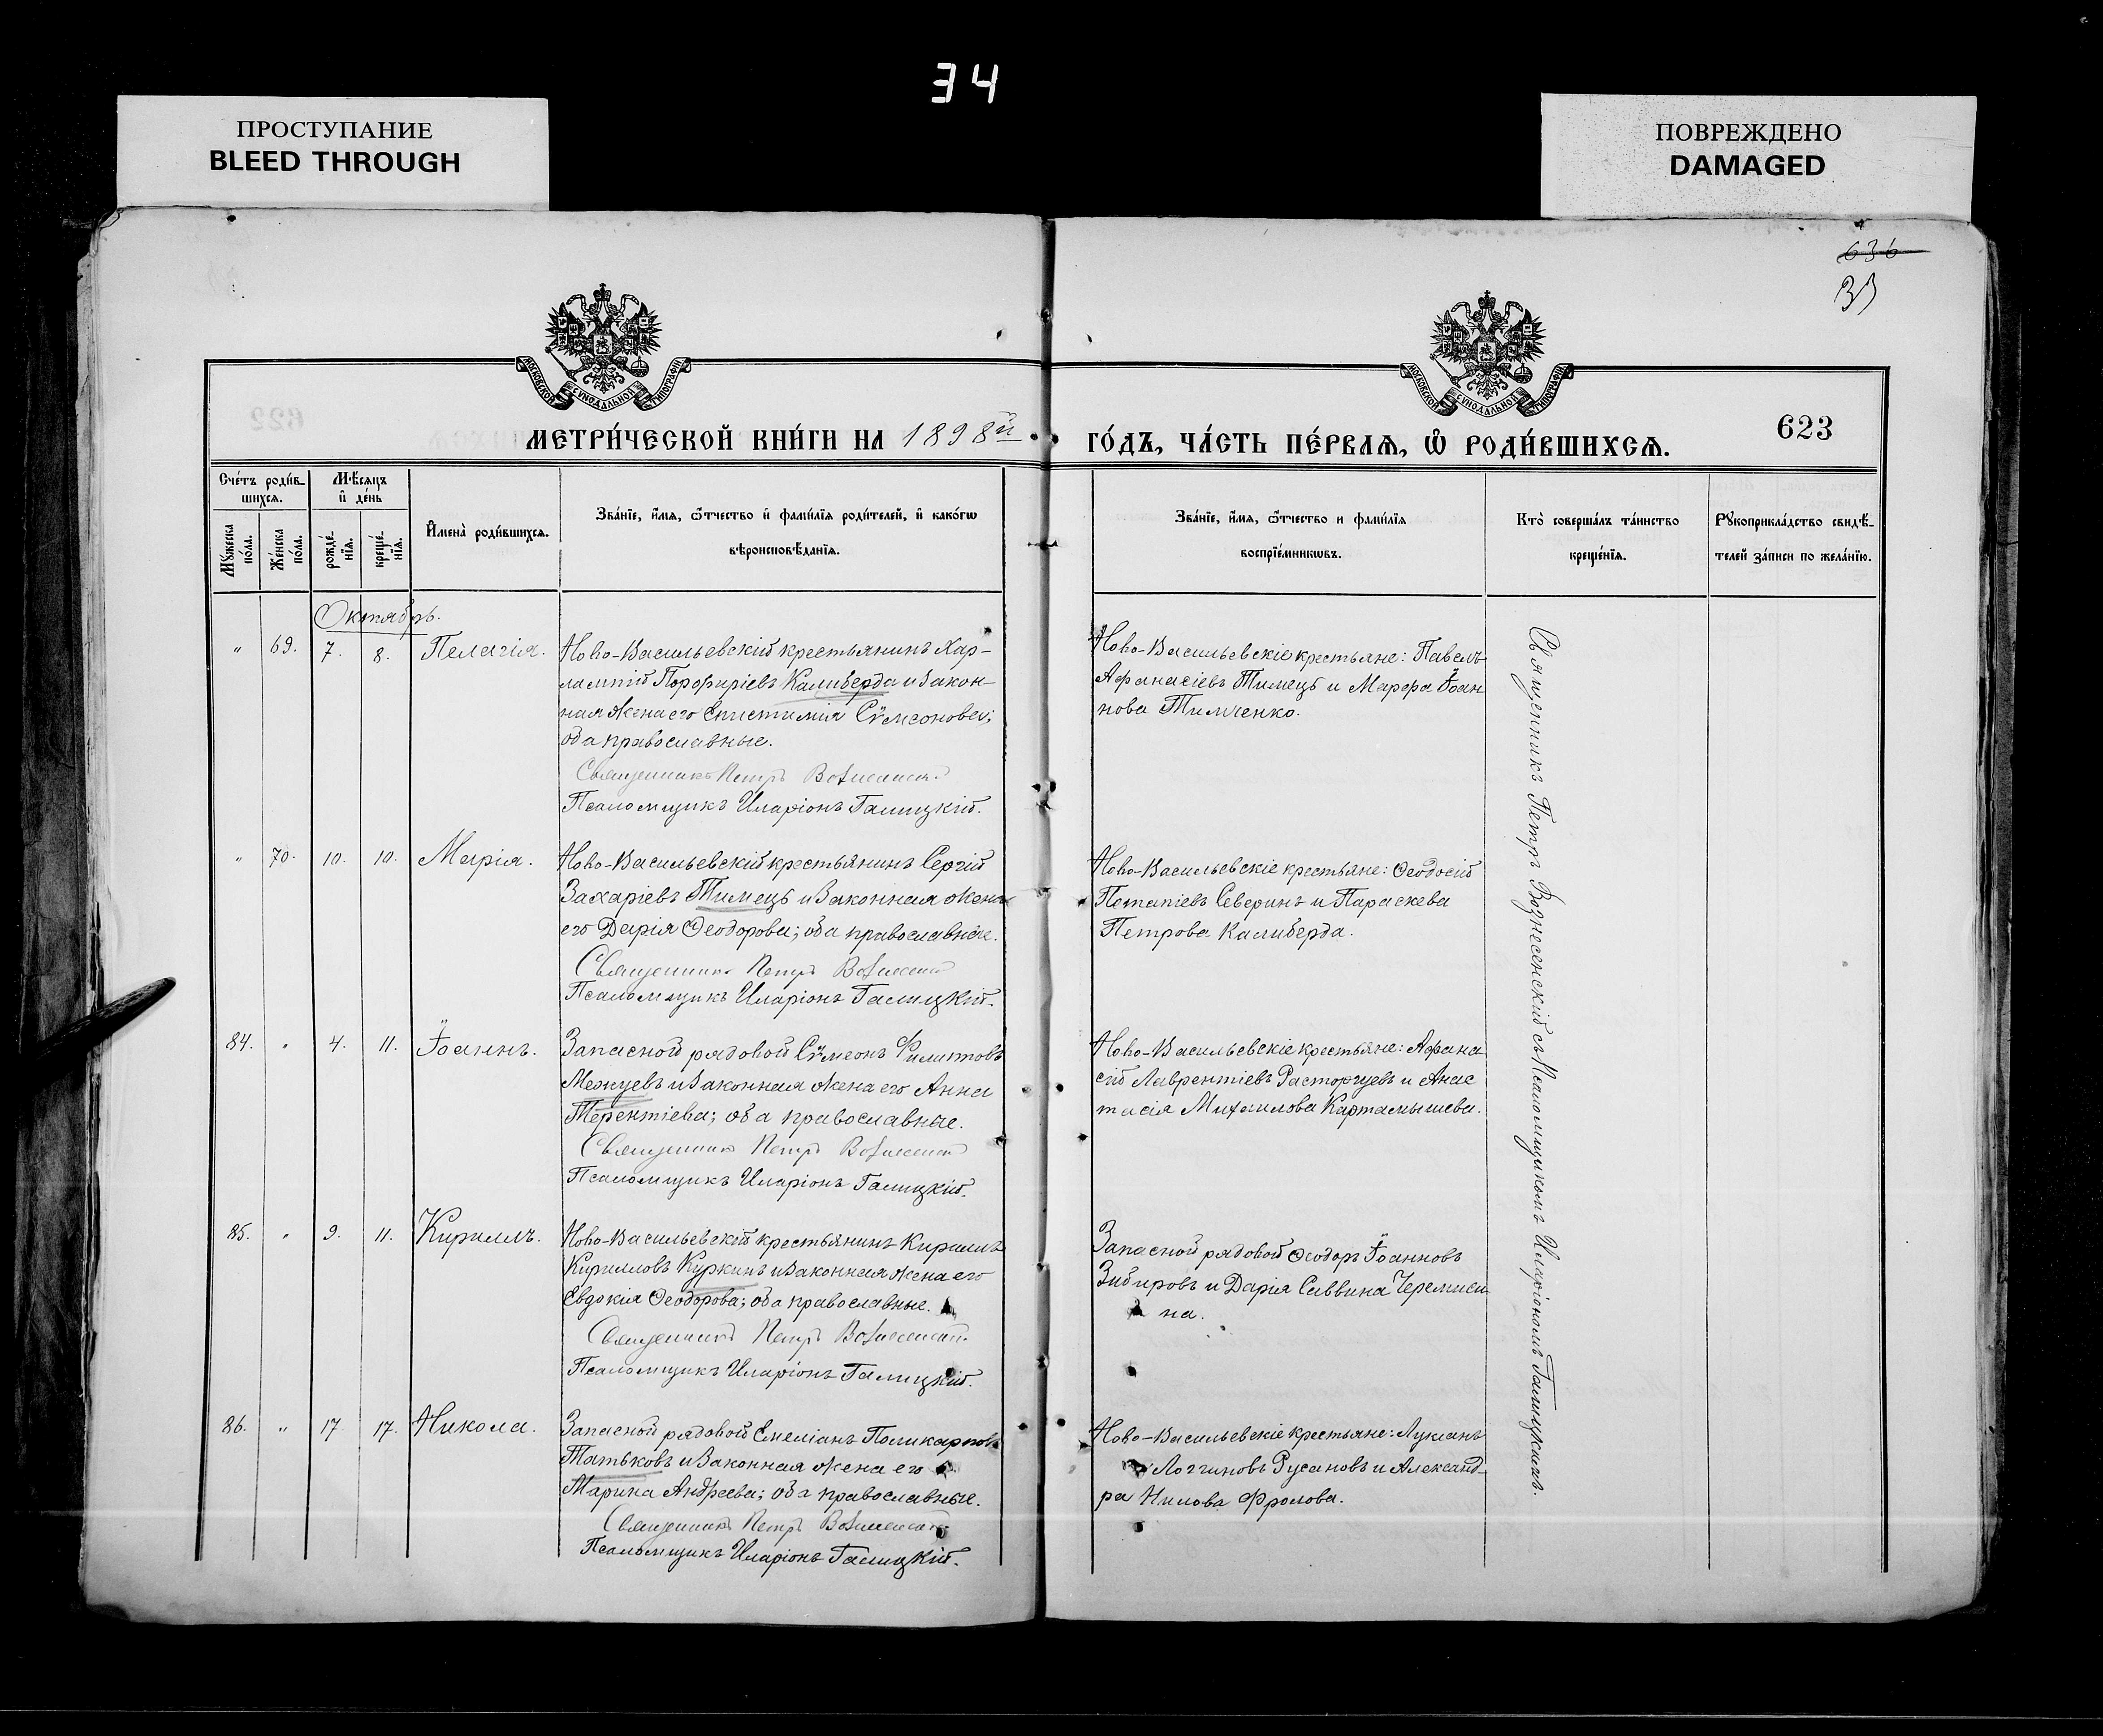 34
ПРОСТУПАНИЕ
BLEED THROUGH
ПОВРЕЖДЕНО
DAMAGED
636
МОСКОВСКОЙ СѴНОДАЛЬНОЙ ТИПОГРАФІИ
МОСКОВСКОЙ СѴНОДАЛЬНОЙ ТИПОГРАФІИ
МЕТРИ́ЧЕСКОЙ КНИ́ГИ НА 1898й
ГО́ДЪ, ЧА́СТЬ ПЕ́РВАѦ, Ѡ҆ РОДИ́ВШИХСѦ.
623
Сче́тъ роди́в-
шихсѧ.
Мѣ́сѧцъ
и҆ де́нь
Мꙋ́жеска
по́ла.
Же́нска
по́ла.
рожде́-
нїѧ.
креще́-
нїѧ.
И҆мена̀ роди́вшихсѧ.
Зва́нїе, и҆́мѧ, ѻ҆́тчество и҆ фами́лїѧ роди́телей, и҆ како́гѡ
вѣроисповѣ́данїѧ.
Зва́нїе, и҆́мѧ, ѻ҆́тчество и фами́лїѧ
воспрїе́мникѡвъ.
Кто̀ соверша́лъ та́инство
креще́нїѧ.
Рꙋкоприкла́дство свидѣ́-
телей за́писи по жела́нїю.
Октябрь.
" 69. 7. 8. Пелагія.
Ново-Васильевскій крестьянинъ Хар-
лампій Порфиріевъ Калиберда и закон-
ная жена его Епистимія Сѵмеонова;
оба православные.
Священникъ Петръ Вознесенскій
Псаломщикъ Иларіонъ Галицкій.
Ново-Васильевскіе крестьяне: Павелъ
Афанасіевъ Тимецъ и Марфа Іоан
нова Тимченко.
" 70. 10. 10. Марія.
Ново-Васильевскій крестьянинъ Сергій
Захаріевъ Тимецъ и законная жена
его Дарія Ѳеодорова; оба православные.
Священникъ Петръ Вознесенскій
Псаломщикъ Иларіонъ Галицкій.
Ново-Васильевскіе крестьяне: Ѳеодосій
Потапіевъ Северинъ и Параскева
Петрова Калиберда.
84. " 4. 11. Іоаннъ.
Запасной рядовой Сѵмеонъ Филиповъ
Межуевъ и законная жена его Анна
Терентіева; оба православные.
Священникъ Петръ Вознесенскій
Псаломщикъ Иларіонъ Галицкій.
Ново-Васильевскіе крестьяне: Афана
сій Лаврентіевъ Расторгуевъ и Анас
тасія Михаилова Картамышева.
85. " 9. 11. Кириллъ.
Ново-Васильевскій крестьянинъ Кириллъ
Кирилловъ Куркинъ и законная жена его
Евдокія Ѳеодорова; оба православные.
Священникъ Петръ Вознесенскій
Псаломщикъ Иларіонъ Галицкій.
Запасной рядовой Ѳеодоръ Іоанновъ
Зибировъ и Дарія Саввина Черемиси
на.
86. " 17 17. Никола.
Запасной рядовой Емеліанъ Поликарповъ
Татьковъ и законная жена его
Марина Андреева; оба православные.
Священникъ Петръ Вознесенскій
Псаломщикъ Иларіонъ Галицкій.
Ново-Васильевскіе крестьяне: Лукіанъ
Логгиновъ Русановъ и Александ-
ра Нилова Фролова.
Священникъ Петръ Вознесенскій съ Псаломщикомъ Иларіономъ Галицкимъ.